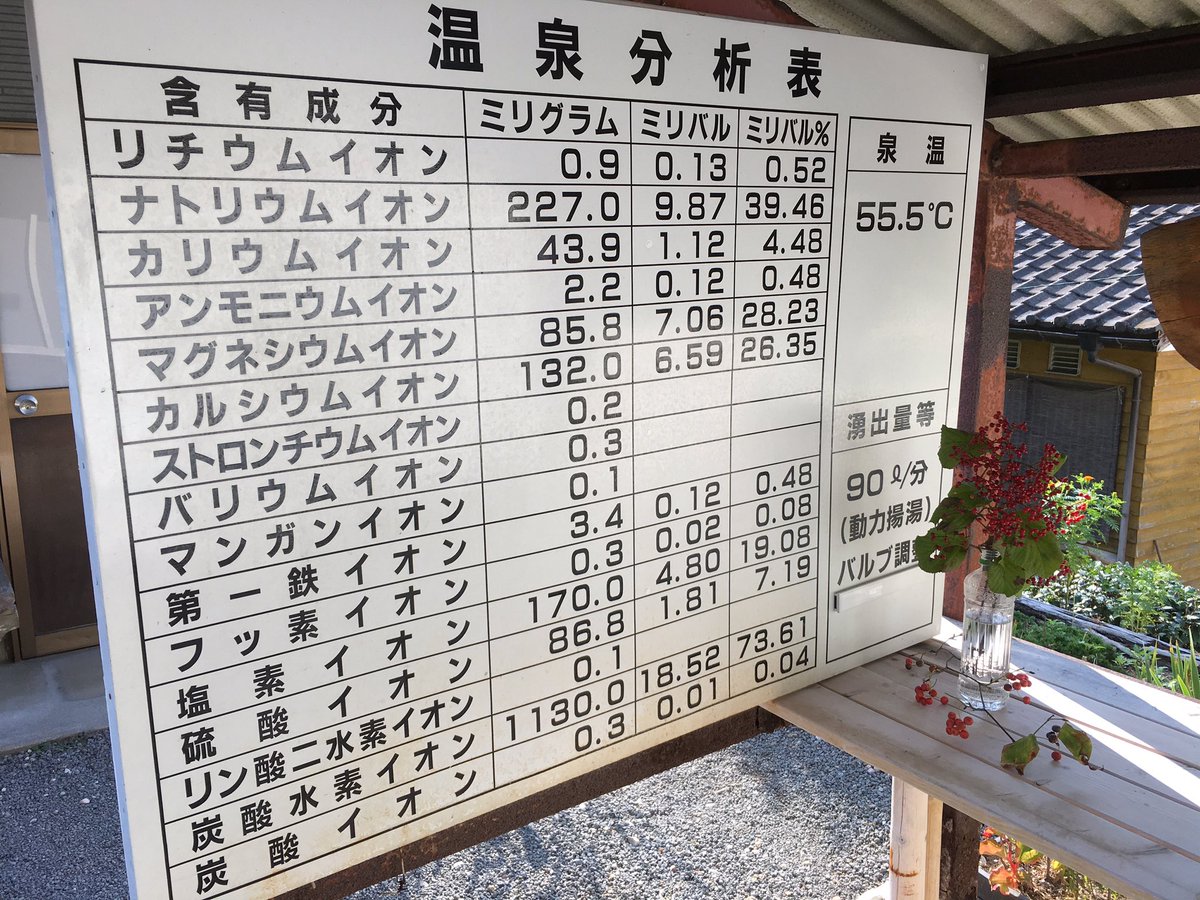 温泉分析表
含有成分 ミリグラム ミリバル ミリバル%
リチウムイオン 0.9 0.13 0.52
ナトリウムイオン 227.0 9.87 39.46
カリウムイオン 43.9 1.12 4.48
アンモニウムイオン 2.2 0.12 0.48
マグネシウムイオン 85.8 7.06 28.23
カルシウムイオン 132.0 6.59 26.35
ストロンチウムイオン 0.2
バリウムイオン 0.3
マンガンイオン 0.1
第一鉄イオン 3.4 0.12 0.48
フッ素イオン 0.3 0.02 0.08
塩素イオン 170.0 4.80 19.08
硫酸イオン 86.8 1.81 7.19
リン酸二水素イオン 0.1
炭酸水素イオン 1130.0 18.52 73.61
炭酸イオン 0.3 0.01 0.04
泉温
55.5℃
湧出量等
90ℓ/分
(動力揚湯)
バルブ調